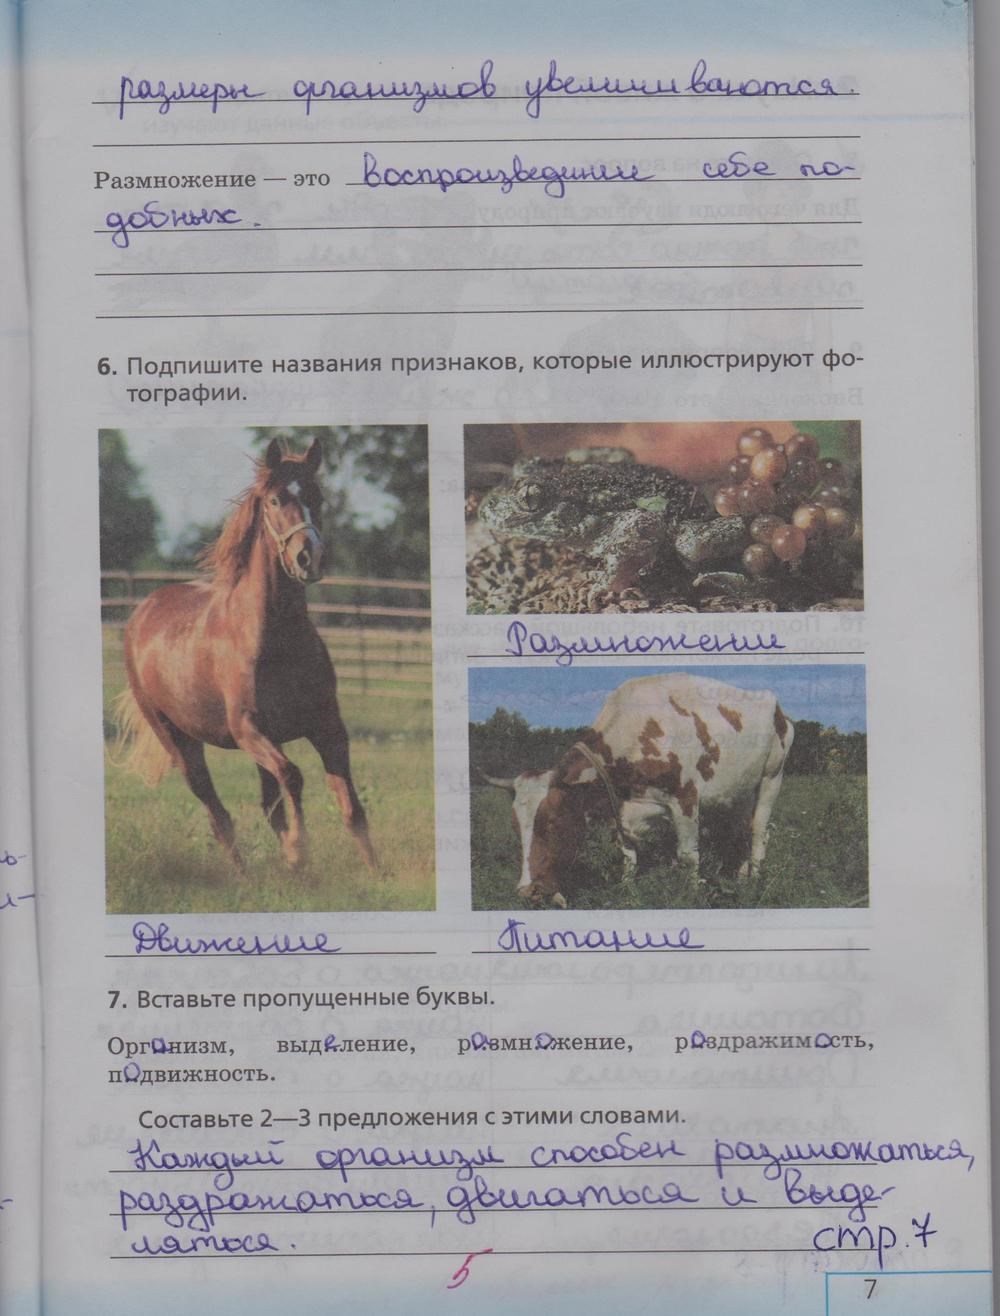 размеры организмов увеличиваются.
Размножение — это воспроизведение себе по-
добных.
6. Подпишите названия признаков, которые иллюстрируют фо-
тографии.
Размножение
Движение
Питание
7. Вставьте пропущенные буквы.
Организм, выделение, размножение, раздражимость,
подвижность.
Составьте 2—3 предложения с этими словами.
Каждый организм способен размножаться,
раздражаться, двигаться и выде-
ляться.
стр. 7
5
7